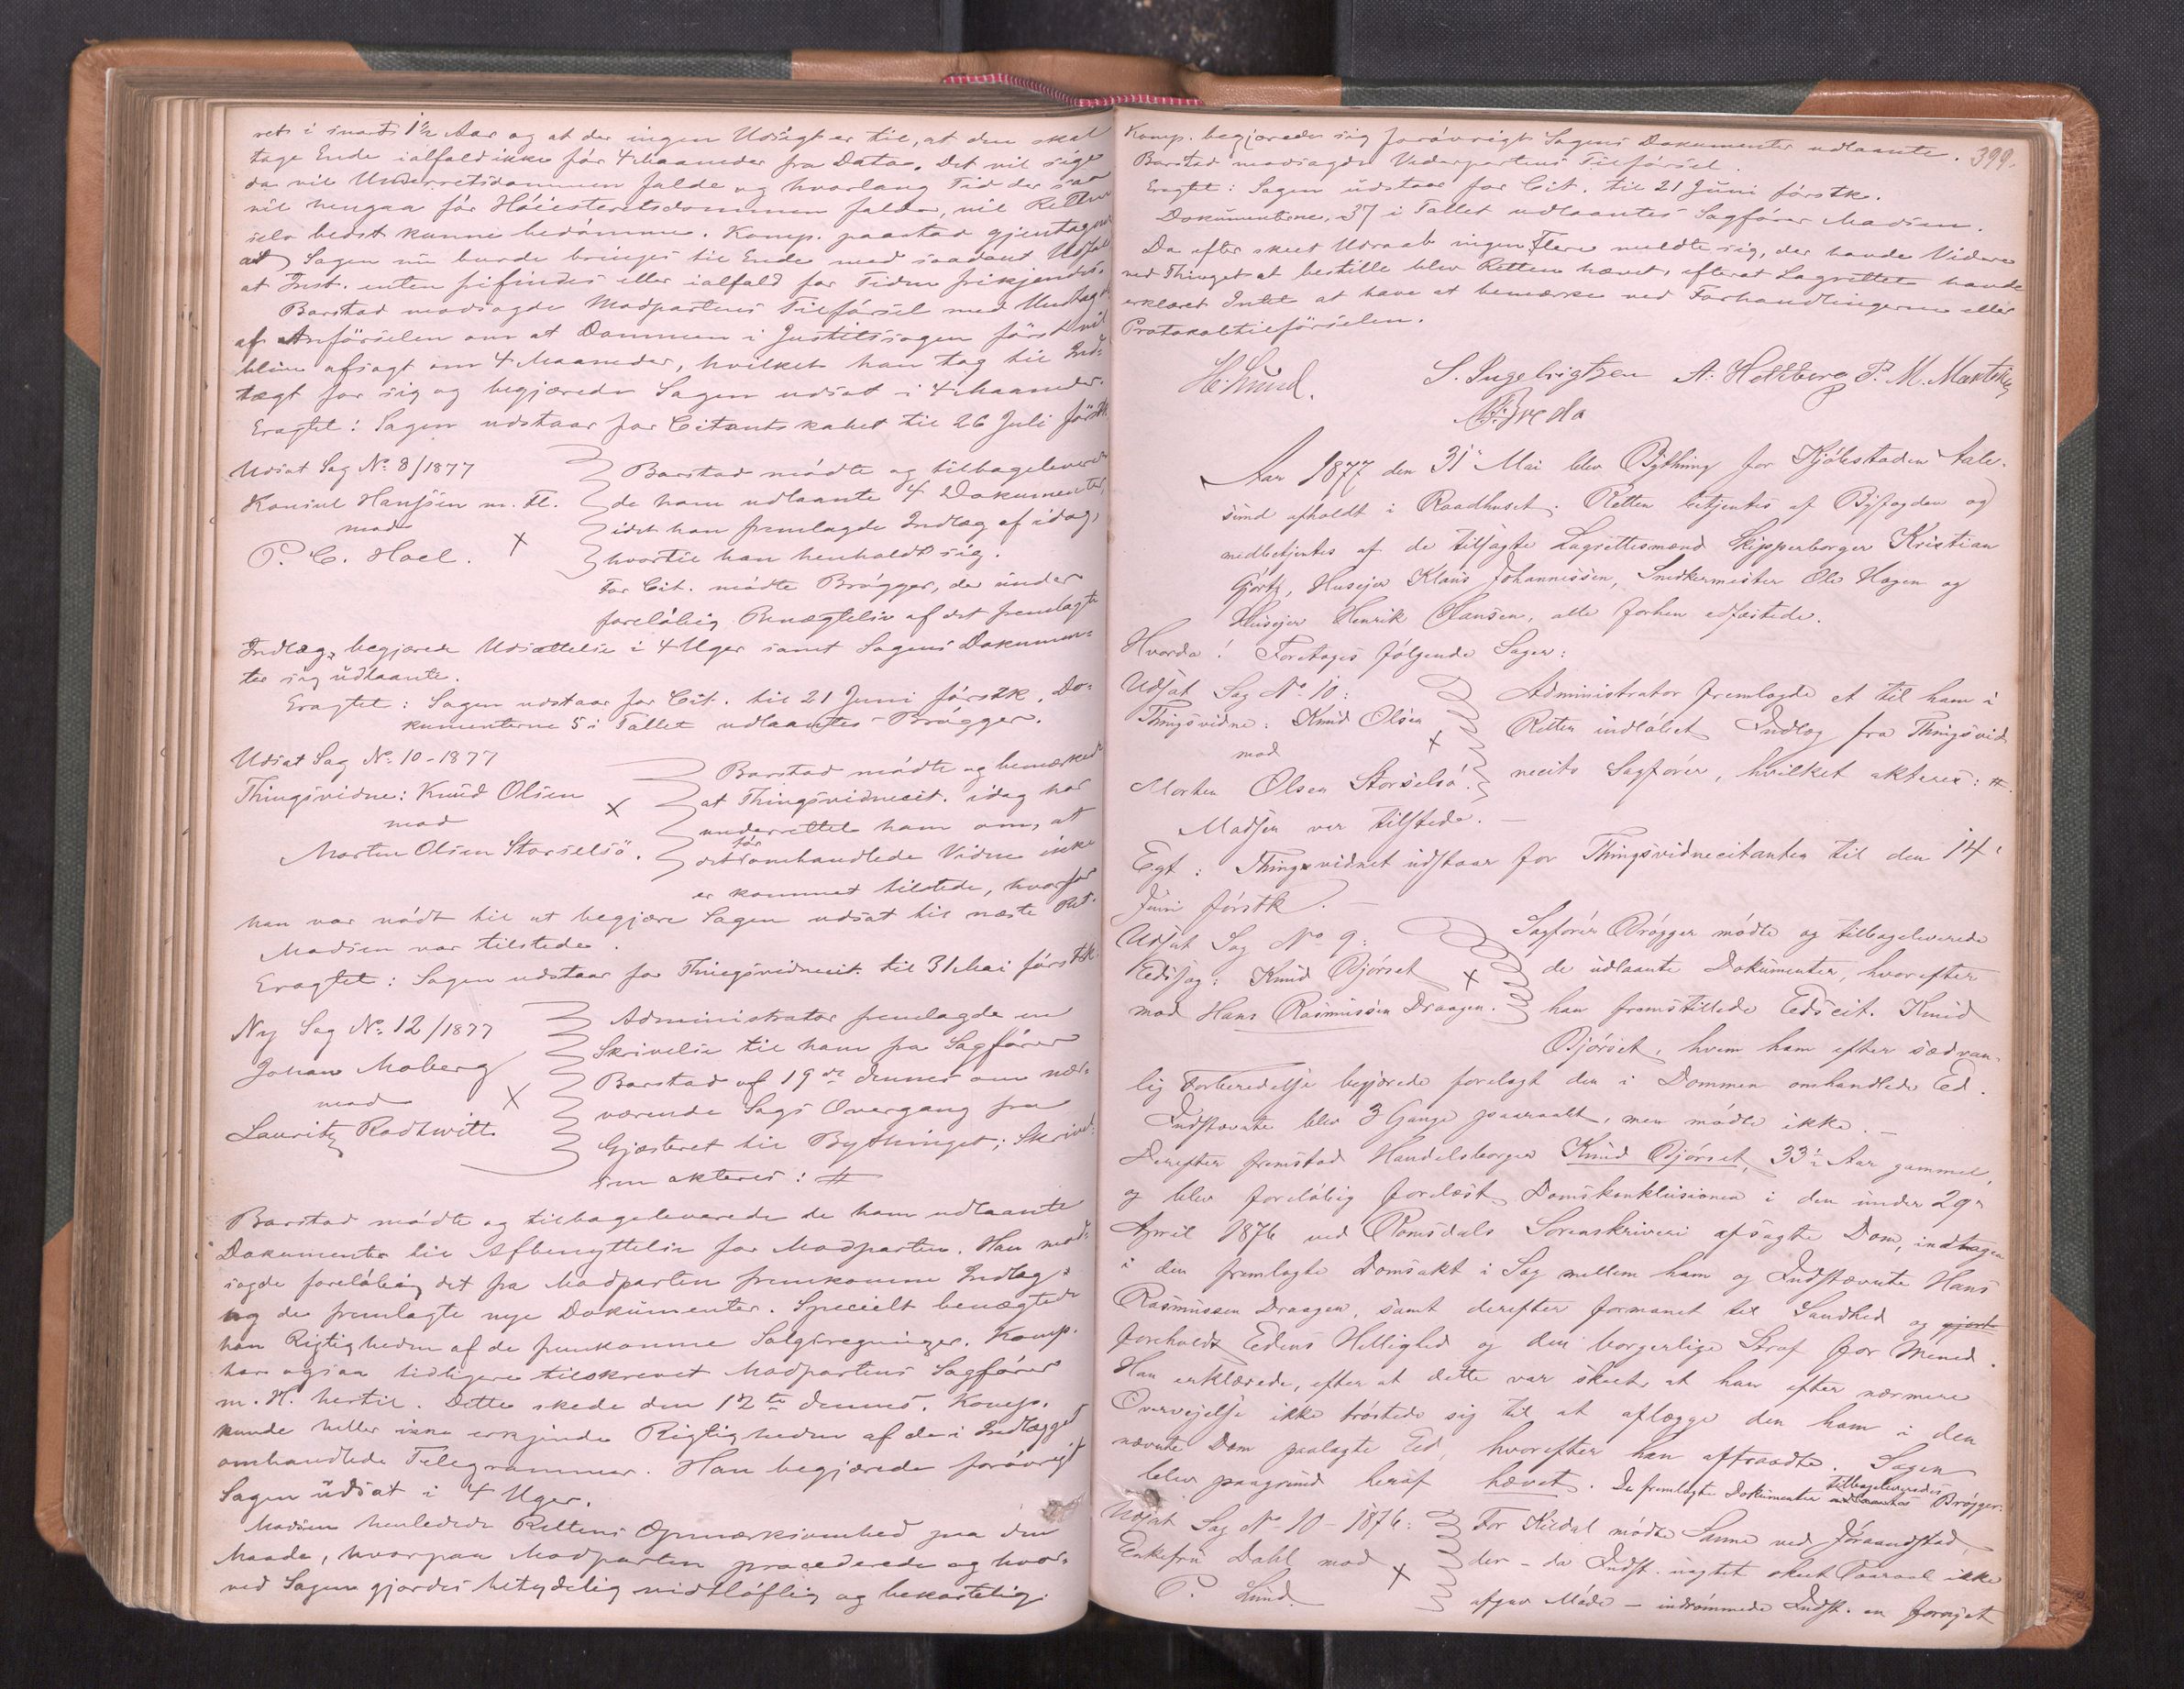 rets i snart 1½ Aar og at der ingen Udsigt er til, at den skal
tage Ende ialfald ikke før 4 Maaneder fra Dato. Det vil sige
da vil Underretsdommen falde og hvorlang Tid der saa
vil hengaa før Høiesteretsdommen falder, vil Retten
selv bedst kunne bedømme. Komp. paastod gjentagende
at Sagen nu burde bringes til Ende med saadant Udfald
at Inst. enten frifindes eller ialfald for Tiden frikjendes.
Barstad modsagde Modpartens Tilførsel med Undtagelse
af Anførselen om at Dommen i Justitssagen først vil
blive afsagt om 4 Maaneder, hvilket han tog til Ind-
tægt for sig og begjærede Sagen udsat i 4 Maaneder.
Eragtet: Sagen udstaar for Citantskabet til 26 Juli førstk.
Udsat Sag No 8/1877
Konsul Hanssen m. Fl.
mod
P. C. Hoel. X
Barstad mødte og tilbageleverede
de ham udlaante 4 Dokumenter,
idet han fremlagde Indlæg af idag,
hvortil han henholdt sig.
For Cit. mødte Brøgger, der under
foreløbig Benægtelse af det fremlagte
Indlæg, begjærede Udsættelse i 4 Uger samt Sagens Dokumen-
ter sig udlaante.
Eragtet: Sagen udstaar for Cit. til 21 Juni førstk. Do-
kumenterne 5 i Tallet udlaantes Brøgger.
Udsat Sag No 10-1877
Thingsvidne: Knud Olsen
mod X
Morten Olsen Storselsö.
Barstad mødte og bemærkede
at Thingsvidnecit. idag har
underrettet ham om, at
det før omhandlede Vidne ikke
er kommet tilstede, hvorfor
han var nødt til at begjære Sagen udsat til næste Ret.
Madsen var tilstede.
Eragtet: Sagen udstaar for Thingsvidnecit. til 31 Mai førstk.
Ny Sag No 12/1877
Johan Moberg
mod X
Lauritz Rodtwitt
Administrator fremlagde en
Skrivelse til ham fra Sagfører
Barstad af 19de dennes om nær-
værende Sags Overgang fra
Gjæsteret til Bythinget; Skrivel-
sen akteres: #
Barstad mødte og tilbageleverede de ham udlaante
Dokumenter til Afbenyttelse for Modparten. Han mod-
sagde foreløbig det fra Modparten fremkomne Indlæg
og de fremlagte nye Dokumenter. Specielt benægtede
han Rigtigheden af de fremkomne Salgsregninger. Komp.
har ogsaa tidligere tilskrevet Modpartens Sagfører
m. H. hertil. Dette skede den 12te dennes. Komp.
kunde heller ikke erkjende Rigtigheden af de i Indlægget
omhandlede Telegrammer. Han begjærede forøvrigt
Sagen udsat i 4 Uger.
Madsen henledede Rettens Opmærksomhed paa den
Maade, hvorpaa Modparten procederede og hvor-
ved Sagen gjordes betydelig vidtløftig og bekostelig.
Komp. begjærede sig forøvrigt Sagens Dokumenter udlaante. 399.
Barstad modsagde Vederpartens Tilførsel.
Eragtet: Sagen udstaar for Cit. til 21 Juni førstk.
Dokumenterne, 37 i Tallet udlaantes Sagfører Madsen.
Da efter skeet Udraab ingen Flere meldte sig, der havde Videre
ved Thinget at bestille blev Retten hævet, efterat Lagrettet havde
erklæret Intet at have at bemærke ved Forhandlingerne eller
Protokoltilførselen.
H. Lund. S. Ingebrigtsen A. Holtberg P. M. Martens
Breda
Aar 1877 den 31' Mai blev Bything for Kjøbstaden Aale-
sund afholdt i Raadhuset. Retten betjentes af Byfogden og
medbetjentes af de tilsagte Lagrettesmænd Skipperborger Kristian
Gjørtz, Husejer Klaus Johannessen, Snedkermester Ole Hagen og
Husejer Henrik Hansen, alle forhen edfæstede.
Hvorda! Foretages følgende Sager:
Udsat Sag No 10:
Thingsvidne: Knud Olsen
mod X
Morten Olsen Storselsø.
Administrator fremlagde et til ham i
Retten indløbet Indlæg fra Thingsvid-
necits Sagfører, hvilket akteres: #.
Madsen var tilstede. —
Egt: Thingsvidnet udstaar for Thingsvidnecitanten til den 14'
Juni førstk. —
Udsat Sag No 9:
Edssag: Knud Bjørset X
mod Hans Rasmussen Draagen.
Sagfører Brøgger mødte og tilbageleverede
de udlaante Dokumenter, hvorefter
han fremstillede Edscit. Knud
Bjørset, hvem han efter sædvan-
lig Forberedelse begjærede forelagt den i Dommen omhandlede Ed.
Indstævnte blev 3 Gange paaraabt, men mødte ikke. —
Derefter fremstod Handelsborger Knud Bjørset, 33½ Aar gammel,
og blev foreløbig forelæst Domskonklusionen i den under 29'
April 1876 ved Romsdals Sorenskriveri afsagte Dom, indtagen
i den fremlagte Domsakt i Sag mellem ham og Indstævnte Hans
Rasmussen Draagen, samt derefter formanet til Sandhed og gjort
foreholdt Edens Hellighed og den borgerlige Straf for Mened.
Han erklærede, efter at dette var skeet, at han efter nærmere
Overvejelse ikke trøstede sig til at aflægge den ham i den
nævnte Dom paalagte Ed, hvorefter han aftraadte. Sagen
blev paagrund heraf hævet. De fremlagte Dokumenter udlaantes tilbageleveredes Brøgger.
Udsat Sag No 10-1876:
Enkefru Dahl mod X
P. Lund.
For Kildal mødte Sanne ved Joraandstad,
der — da Indst. uagtet skeet Paaraab ikke
afgav Møde — indrømmede Indst. en fornyet